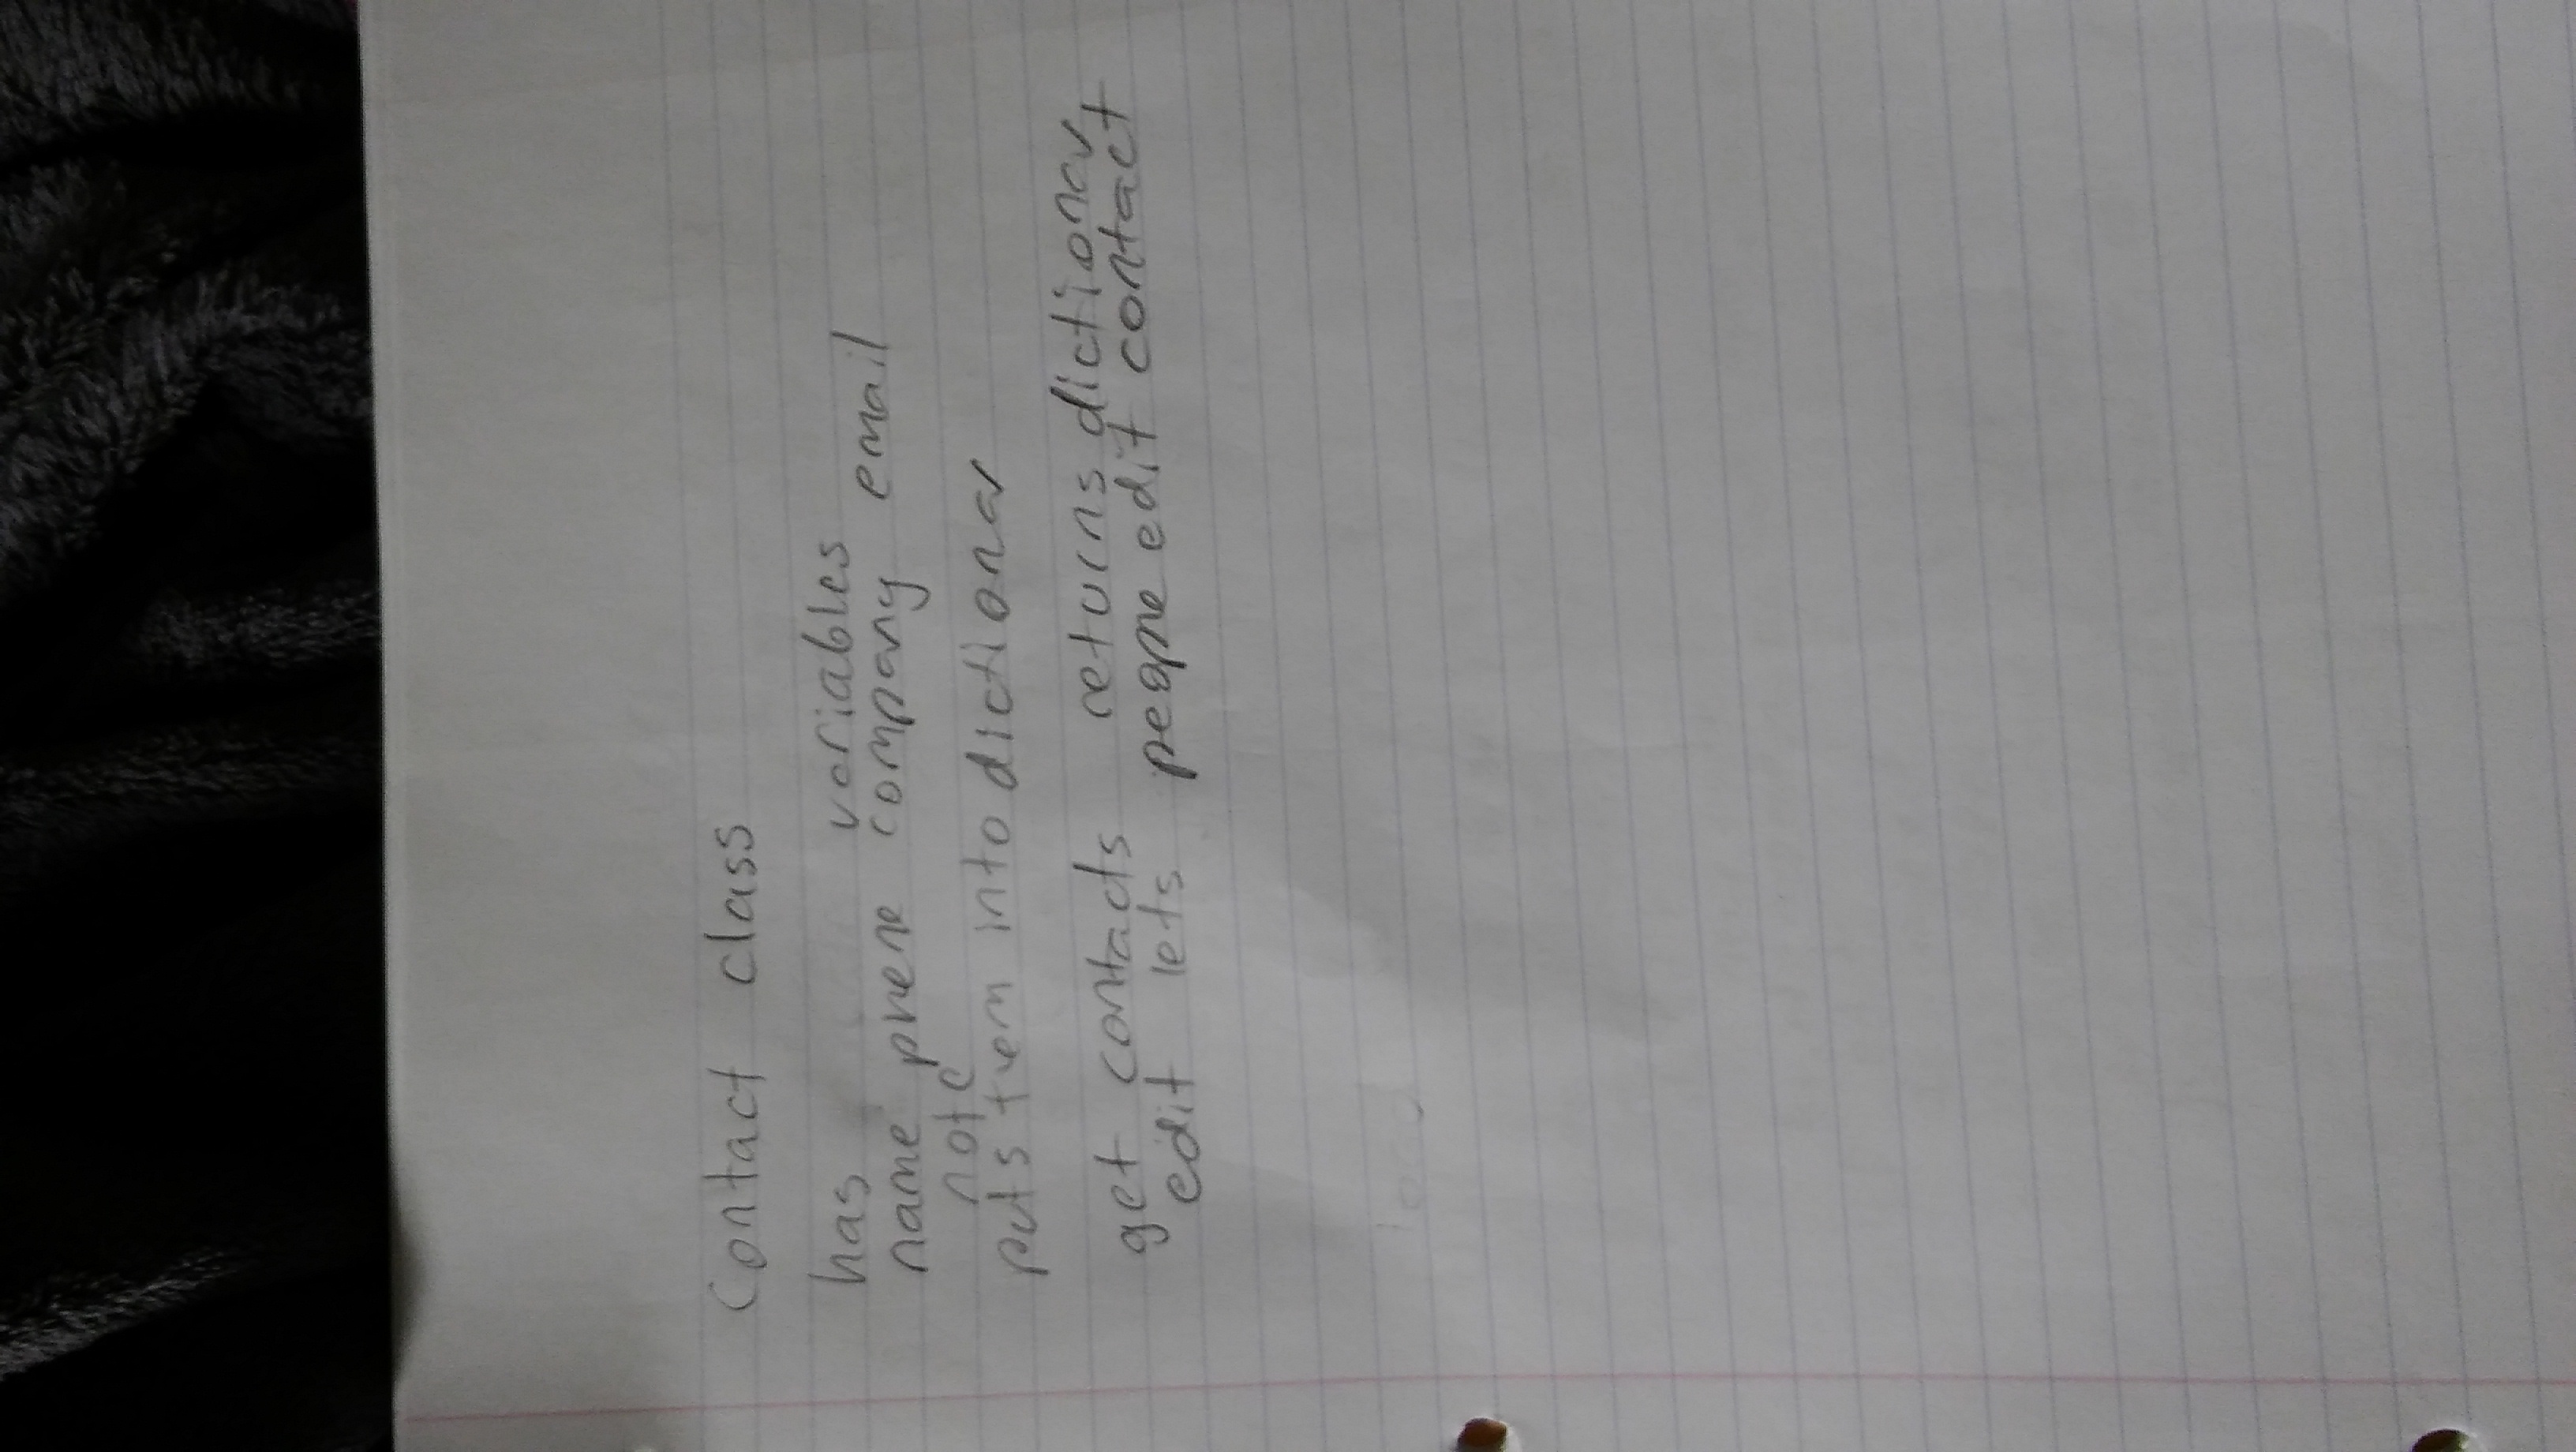 Contact class
has variables
name phene company email
note
puts them into dictionar
get contacts returns dictionary
edit lets people edit contact
load